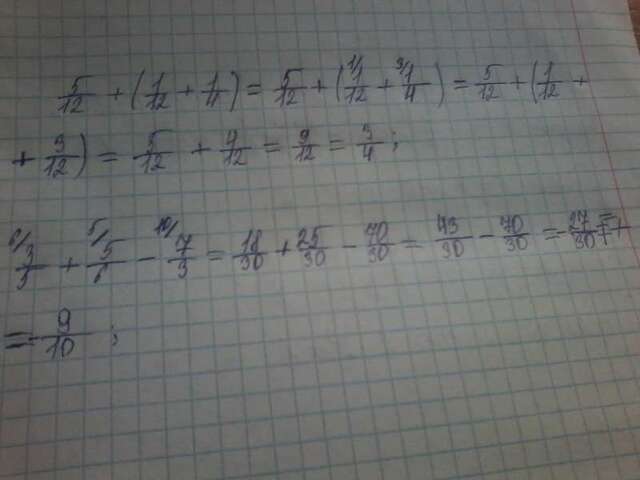 5/12 + (1/12 + 1/4) = 5/12 + (1/1/12 + 3/1/4) = 5/12 + (1/12 +
+ 3/12) = 5/12 + 4/12 = 9/12 = 3/4;
6/3/5 + 5/5/6 - 10/7/3 = 18/30 + 25/30 - 70/30 = 43/30 - 70/30 = -27/30 =
= -9/10;